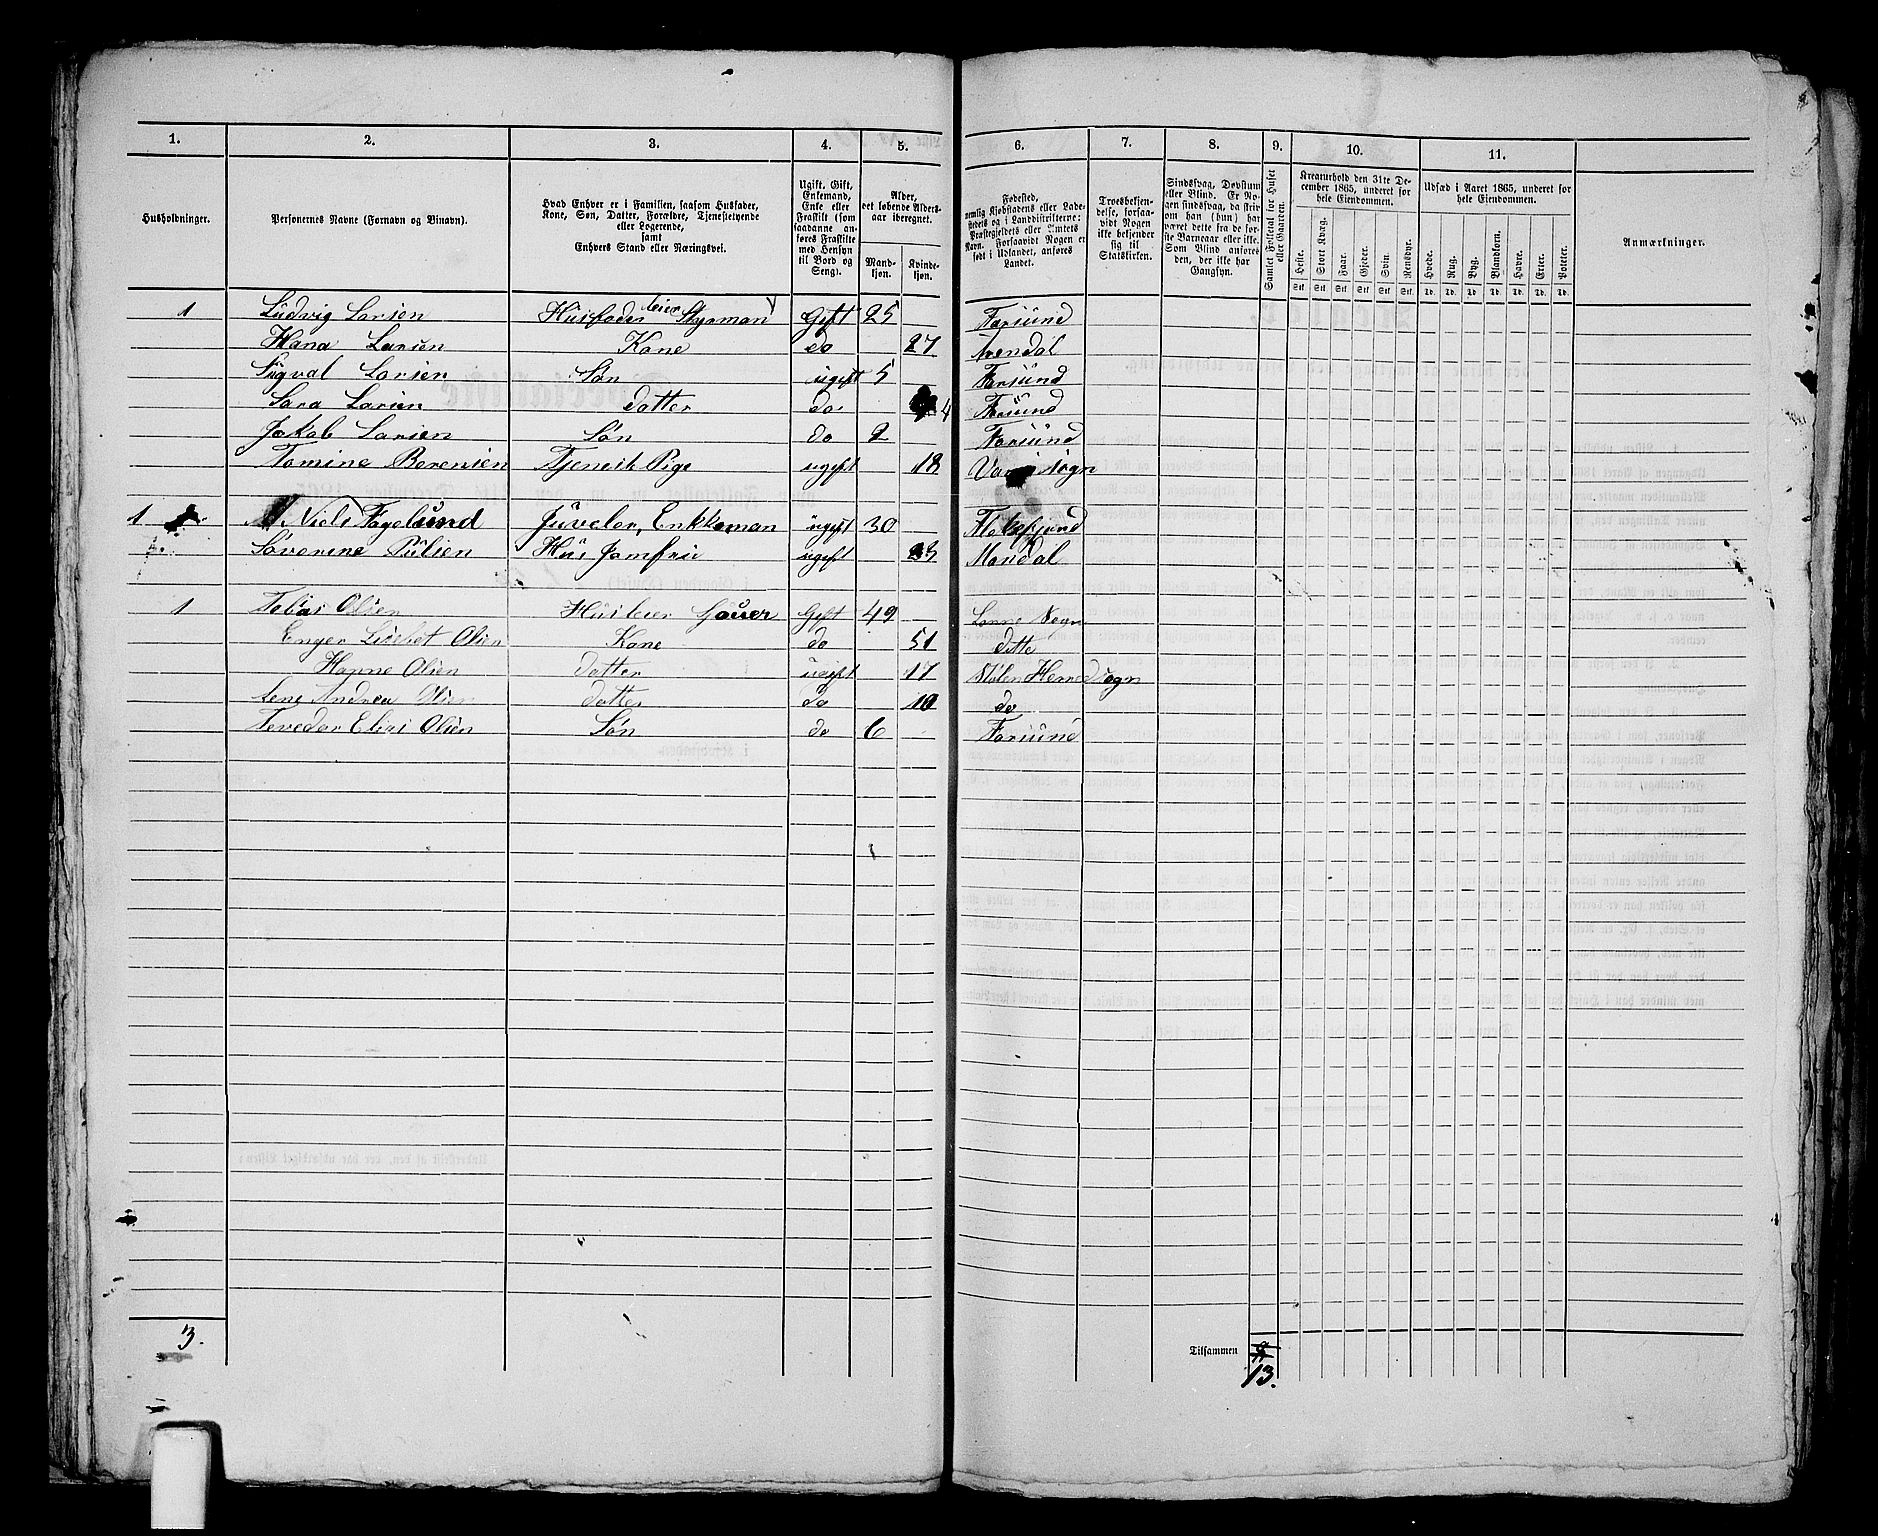 1. 2. 3. 4. 5. 6. 7. 8. 9. 10. 11.
Husholdninger.
Personernes Navne (Fornavn og Binavn).
Hvad Enhver er i Familien, saasom Husfader,
Kone, Søn, Datter, Forældre, Tjenestetyende
eller Logerende,
samt
Enhvers Stand eller Næringsvei.
Ugift, Gift,
Enkemand,
Enke eller
Fraskilt (som
saadanne an-
føres Fraskilte
med Hensyn
til Bord og
Seng).
Alder,
det løbende Alders-
aar iberegnet.
Mand-
kjøn.
Kvinde-
kjøn.
Fødested,
nemlig Kjøbstadens eller Lade-
stedets og i Landdistrikterne:
Præstegjeldets eller Amtets
Navn. Forsaavidt Nogen er
født i Udlandet, anføres
Landet.
Troesbekjen-
delse, forsaa-
vidt Nogen
ikke bekjender
sig til
Statskirken.
Sindssvag, Døvstum
eller Blind. Er No-
gen sindssvag, da skriv
om han (hun) har
været dette fra de før-
ste Barneaar eller ikke.
Som Blind anføres
den, der ikke har
Gangsyn.
Samlet Folketal for Huset
eller Gaarden.
Kreaturhold den 31te De-
cember 1865, underet for
hele Eiendommen.
Heste. Stort Kvæg. Faar. Gjeder. Svin. Rensdyr.
Stk Stk Stk Stk Stk Stk
Udsæd i Aaret 1865, underet for
hele Eiendommen.
Hvede. Rug. Byg. Blandkorn. Havre. Erter. Poteter.
Td. Td. Td. Td. Td. Td. Td.
Anmærkninger.
1 Ludvig Larsen Husfader leier Styrman Gift 25 Farsund
Hana Larsen Kone do 27 Arendal
Sigval Larsen Søn ugift 5 Farsund
Sara Larsen datter do 4 Farsund
Jakob Larsen Søn do 2 Farsund
Tomine Berensen Tjeneste Pige ugift 18 Vanse sogn
1 Niels Fagelund Juveler, Enkeman ugift 30 Flekefjund
Severene Pulsen Hus Jomfru ugift 23 Mandal
1 Tobias Olsen Husleier Gift 49 Sogn
Enger Lisebet Olsen Kone do 51 ditto
Hanne Olsen datter ugift 17 Herred sogn
Lene Andrea Olsen datter do 10 do
Tevedor Elias Olsen Søn do 6 Farsund
3.
Tilsammen
13.